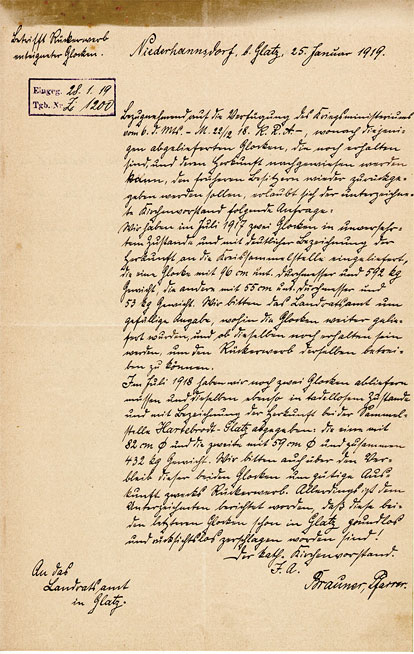 Betrifft Rückerwerb
enteigneter Glocken.
Niederhannsdorf, b. Glatz, 25. Januar 1919.
Eingeg. 28. 1. 19
Tgb. Nr. I 1200
Bezugnehmend auf die Verfügung des Kriegsministeriums
vom 6. d. Mts. - M. 22/2 18. K. R. A -, wonach diejeni-
gen abgelieferten Glocken, die noch erhalten
sind und deren Herkunft nachgewiesen werden
kann, den früheren Besitzern wieder zurückge-
geben werden sollen, erlaubt sich der unterzeichne-
te Kirchenvorstand folgende Anfrage:
Wir haben im Juli 1917 zwei Glocken in unversehr-
tem Zustande und mit deutlicher Bezeichnung der
Herkunft an die Kreissammelstelle eingeliefert,
die eine Glocke mit 96 cm unt. Durchmesser und 592 kg
Gewicht, die andere mit 55 cm unt. Durchmesser und
53 kg Gewicht. Wir bitten das Landratsamt um
gefällige Angabe, wohin die Glocken weiter gelie-
fert wurden, und ob dieselben noch erhalten sein
werden, um den Rückerwerb derselben betrei-
ben zu können.
Im Juli 1918 haben wir noch zwei Glocken abliefern
müssen und dieselben ebenso in tadellosem Zustande
und mit Bezeichnung der Herkunft bei der Sammel-
stelle Hartebrodt-Glatz abgegeben: die eine mit
82 cm Ø und die zweite mit 59 cm Ø und zusammen
432 kg Gewicht. Wir bitten auch über den Ver-
bleib dieser beiden Glocken um gütige Aus-
kunft zwecks Rückerwerb. Allerdings ist dem
Unterzeichneten berichtet worden, daß diese bei-
den letzteren Glocken schon in Glatz grundlos
und rücksichtslos zerschlagen worden sind!
Der kath. Kirchenvorstand.
I. A.
Brauner, Pfarrer.
An das
Landratsamt
in Glatz.